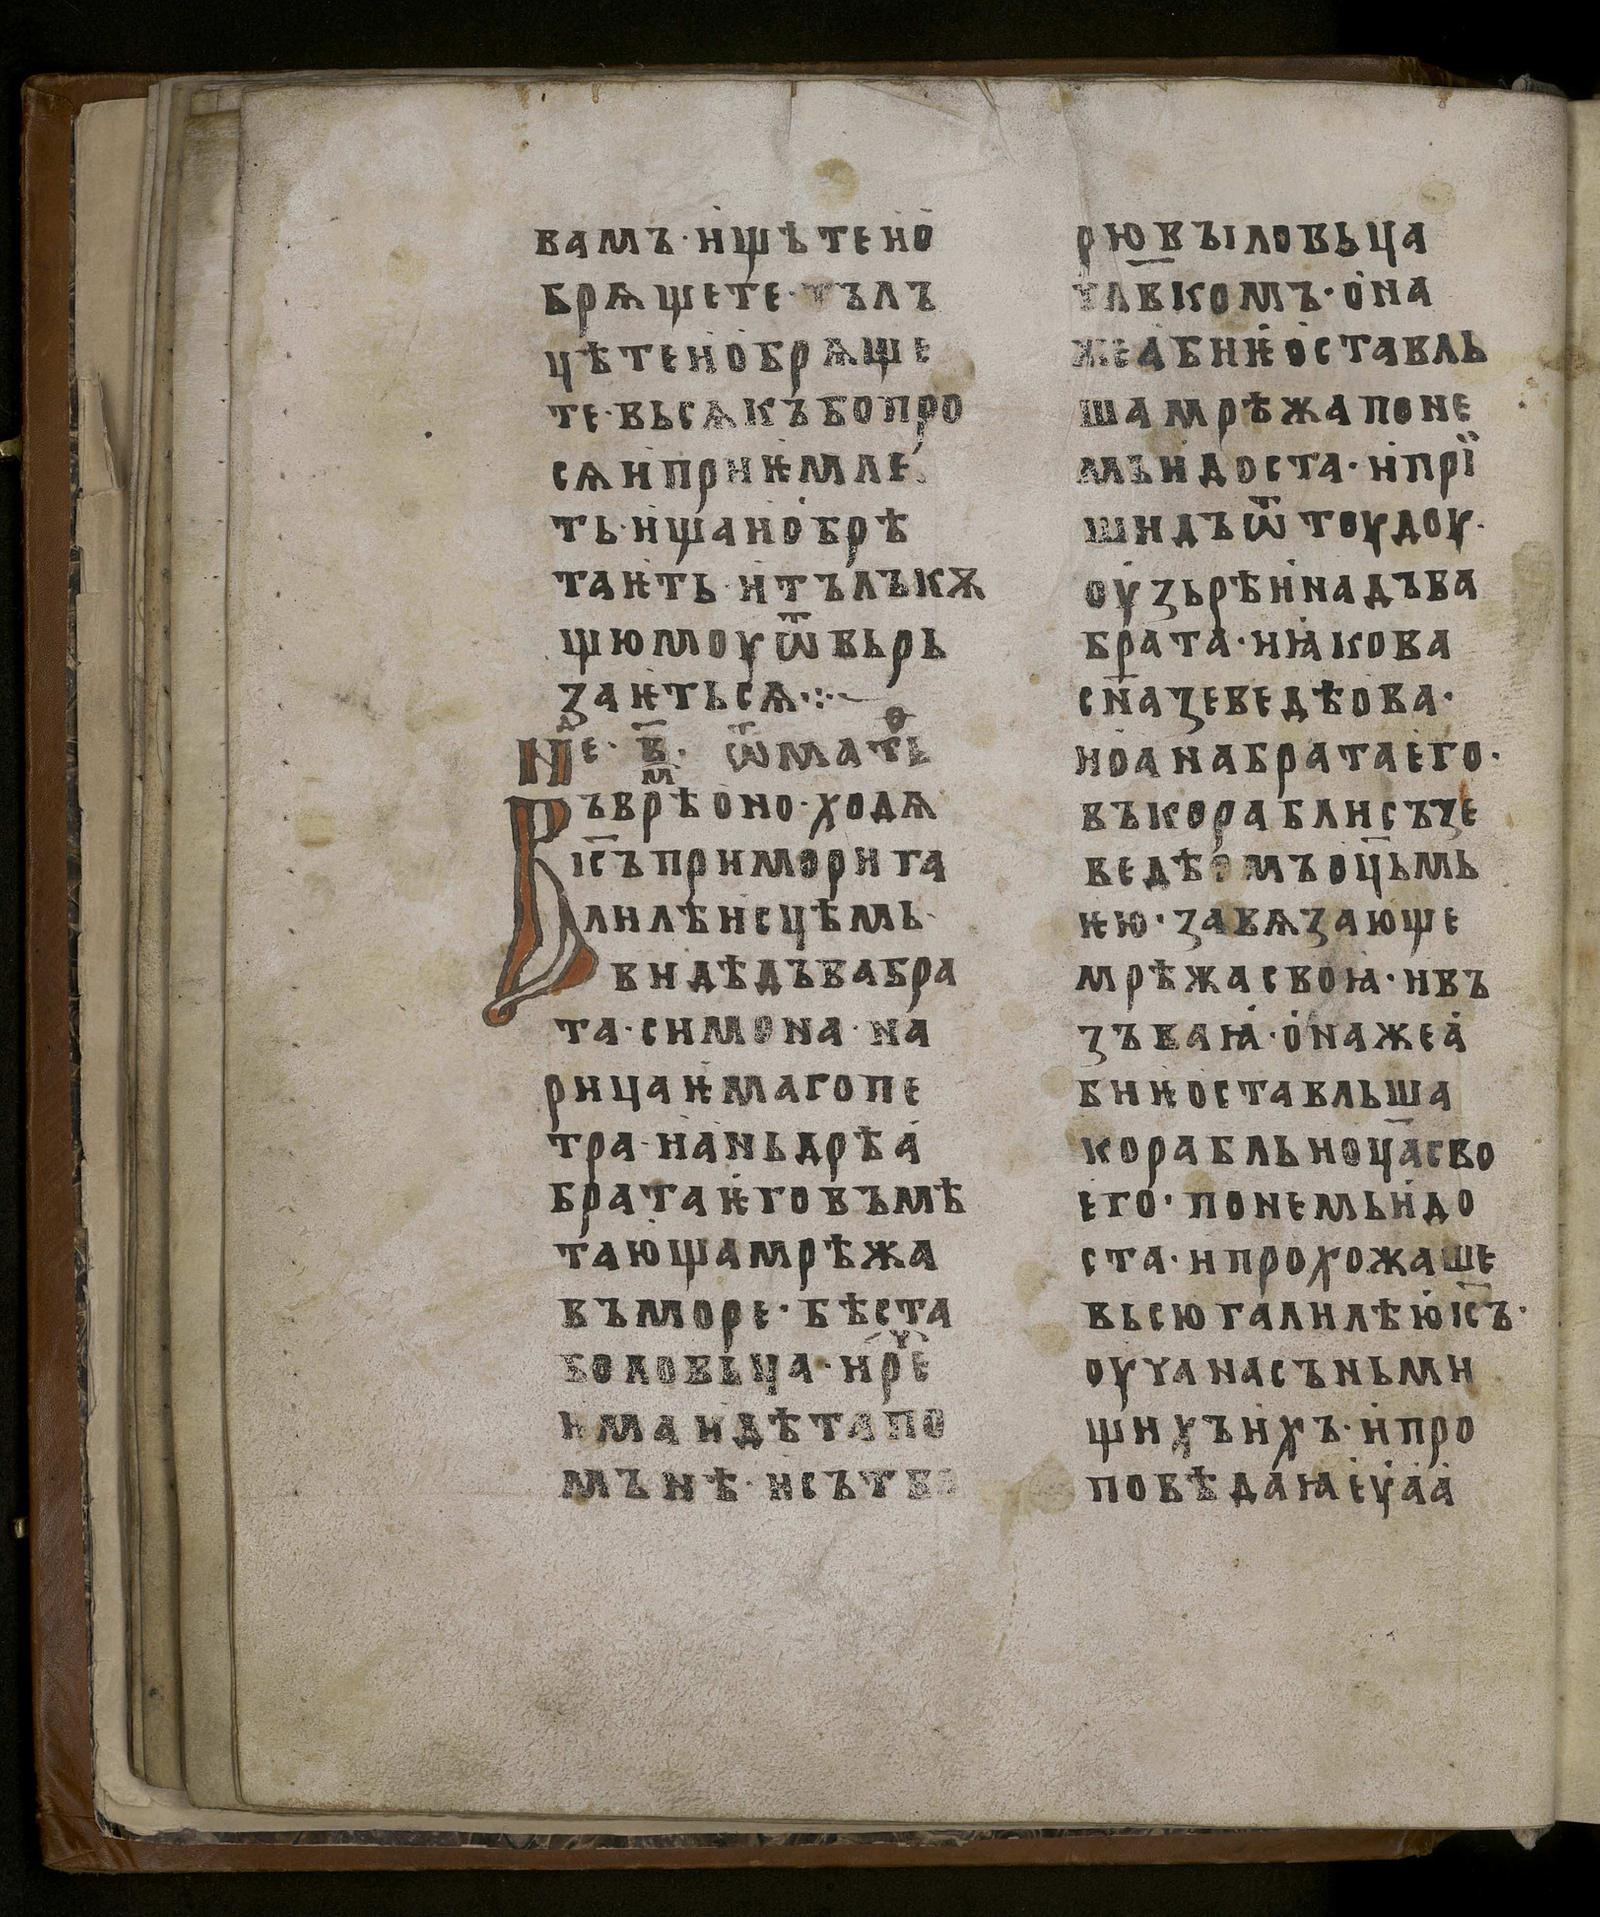 вамъ· ищѣте и о
брѧщете· тъль
цѣте и обрѧще
те· вьсѧкъ бо про
сѧи приѥмле
ть· ищаи обрѣ
таѥть· и тълъкѫ
щюмоу ѿвьрь
заѥтьсѧ·:·
Нⷣе· в҃· ѿ маⷴ҇е
Въ врⷨѣ оно· ходѧ
іс҃ъ при мори га
лилѣисцѣмь·
видѣ дъва бра
та· симона· на
рицаѥмаго пе
тра· и аньдрѣа
брата ѥго въмѣ
тающа мрѣжа
въ море· бѣста
бо ловьца· и реⷱ҇
има идѣта по
мънѣ· и сътво
рю вы ловьца
чл҃вкомъ· она
же абиѥ оставль
ша мрѣжа по не
мь идоста· и прї
шидъ ѿтоудоу·
оузьрѣ ина дъва
брата· иꙗкова
сн҃а зеведѣова·
иоана брата его·
въ корабли съ зе
ведѣомъ оц҃ьмь
ѥю· завѧзающе
мрѣжа своꙗ· и въ
зъва ꙗ· она же а
биѥ оставльша
корабль и оц҃а сво
его· по немь идо
ста· и прохожаше
вьсю галилѣю іс҃ъ·
оуча на съньми
щихъ ихъ· и про
повѣдаꙗ еѵаа